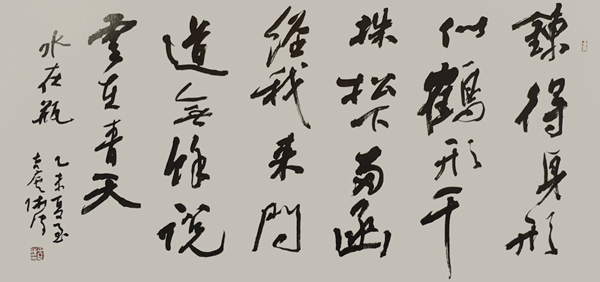 鍊得身形
似鶴形千
株松下兩函
經我来問
道無餘說
雲在青天
水在瓶
乙未夏至